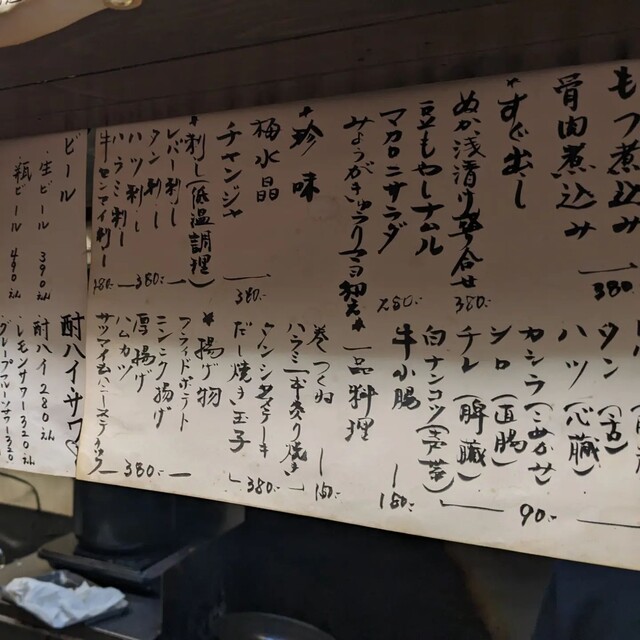 もつ煮込み
骨肉煮込み
380
*すぐ出し
ぬか浅漬け盛り合せ
380.-
豆もやしナムル
マカロニサラダ
280.-
みょうがきゅうりマヨ和え
*珍味
梅水晶
チャンジャ
380.-
*刺し(低温調理)
レバー刺し
タン刺し
ハツ刺し
ハラミ刺し
380.-
牛センマイ刺し
タン(舌)
ハツ(心臓)
カシラ(こめかみ)
シロ(直腸)
チレ(脾臓)
90.-
白ナンコツ(声帯)
牛小腸
180.-
*一品料理
巻つくね
150.-
だし焼き玉子
380.-
*揚げ物
フライドポテト
ニンニク揚げ
厚揚げ
ハムカツ
380.-
ビール
生ビール 390えん
瓶ビール 490えん
酎ハイサワー
酎ハイ 280えん
レモンサワー 320えん